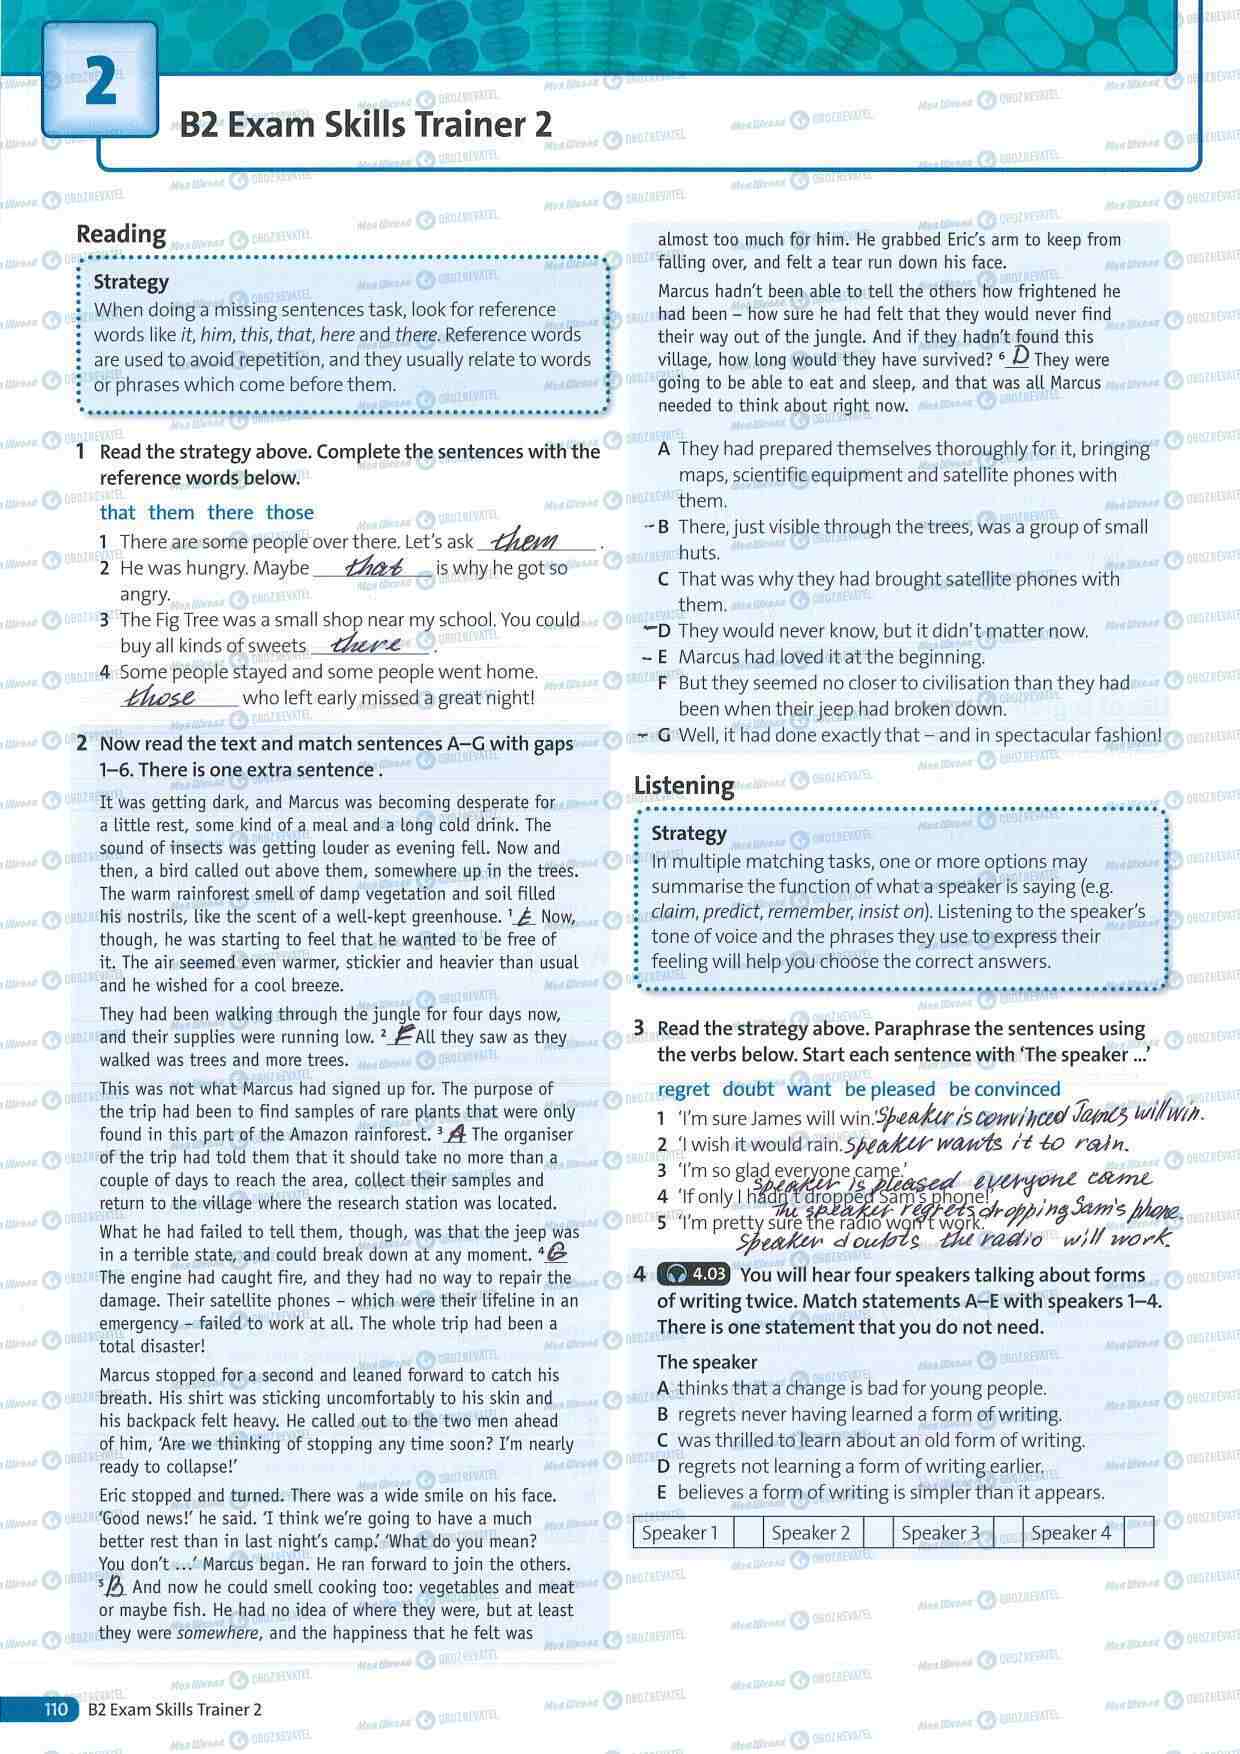 2
B2 Exam Skills Trainer 2
Reading
Strategy
When doing a missing sentences task, look for reference
words like it, him, this, that, here and there. Reference words
are used to avoid repetition, and they usually relate to words
or phrases which come before them.
1 Read the strategy above. Complete the sentences with the
reference words below.
that them there those
1 There are some people over there. Let's ask them .
2 He was hungry. Maybe that is why he got so
angry.
3 The Fig Tree was a small shop near my school. You could
buy all kinds of sweets there .
4 Some people stayed and some people went home.
those who left early missed a great night!
2 Now read the text and match sentences A–G with gaps
1–6. There is one extra sentence .
It was getting dark, and Marcus was becoming desperate for
a little rest, some kind of a meal and a long cold drink. The
sound of insects was getting louder as evening fell. Now and
then, a bird called out above them, somewhere up in the trees.
The warm rainforest smell of damp vegetation and soil filled
his nostrils, like the scent of a well-kept greenhouse. 1 E Now,
though, he was starting to feel that he wanted to be free of
it. The air seemed even warmer, stickier and heavier than usual
and he wished for a cool breeze.
They had been walking through the jungle for four days now,
and their supplies were running low. 2 F All they saw as they
walked was trees and more trees.
This was not what Marcus had signed up for. The purpose of
the trip had been to find samples of rare plants that were only
found in this part of the Amazon rainforest. 3 A The organiser
of the trip had told them that it should take no more than a
couple of days to reach the area, collect their samples and
return to the village where the research station was located.
What he had failed to tell them, though, was that the jeep was
in a terrible state, and could break down at any moment. 4 G
The engine had caught fire, and they had no way to repair the
damage. Their satellite phones – which were their lifeline in an
emergency – failed to work at all. The whole trip had been a
total disaster!
Marcus stopped for a second and leaned forward to catch his
breath. His shirt was sticking uncomfortably to his skin and
his backpack felt heavy. He called out to the two men ahead
of him, 'Are we thinking of stopping any time soon? I'm nearly
ready to collapse!'
Eric stopped and turned. There was a wide smile on his face.
'Good news!' he said. 'I think we're going to have a much
better rest than in last night's camp.' 'What do you mean?
You don't …' Marcus began. He ran forward to join the others.
5 B And now he could smell cooking too: vegetables and meat
or maybe fish. He had no idea of where they were, but at least
they were somewhere, and the happiness that he felt was
110 B2 Exam Skills Trainer 2
almost too much for him. He grabbed Eric's arm to keep from
falling over, and felt a tear run down his face.
Marcus hadn't been able to tell the others how frightened he
had been – how sure he had felt that they would never find
their way out of the jungle. And if they hadn't found this
village, how long would they have survived? 6 D They were
going to be able to eat and sleep, and that was all Marcus
needed to think about right now.
A They had prepared themselves thoroughly for it, bringing
maps, scientific equipment and satellite phones with
them.
B There, just visible through the trees, was a group of small
huts.
C That was why they had brought satellite phones with
them.
D They would never know, but it didn't matter now.
E Marcus had loved it at the beginning.
F But they seemed no closer to civilisation than they had
been when their jeep had broken down.
G Well, it had done exactly that – and in spectacular fashion!
Listening
Strategy
In multiple matching tasks, one or more options may
summarise the function of what a speaker is saying (e.g.
claim, predict, remember, insist on). Listening to the speaker's
tone of voice and the phrases they use to express their
feeling will help you choose the correct answers.
3 Read the strategy above. Paraphrase the sentences using
the verbs below. Start each sentence with 'The speaker …'
regret doubt want be pleased be convinced
1 'I'm sure James will win.' Speaker is convinced James will win.
2 'I wish it would rain. Speaker wants it to rain.
3 'I'm so glad everyone came.'
Speaker is pleased everyone came
4 'If only I hadn't dropped Sam's phone!
The speaker regrets dropping Sam's phone.
5 'I'm pretty sure the radio won't work.'
Speaker doubts the radio will work.
4 4.03 You will hear four speakers talking about forms
of writing twice. Match statements A–E with speakers 1–4.
There is one statement that you do not need.
The speaker
A thinks that a change is bad for young people.
B regrets never having learned a form of writing.
C was thrilled to learn about an old form of writing.
D regrets not learning a form of writing earlier.
E believes a form of writing is simpler than it appears.
Speaker 1 Speaker 2 Speaker 3 Speaker 4